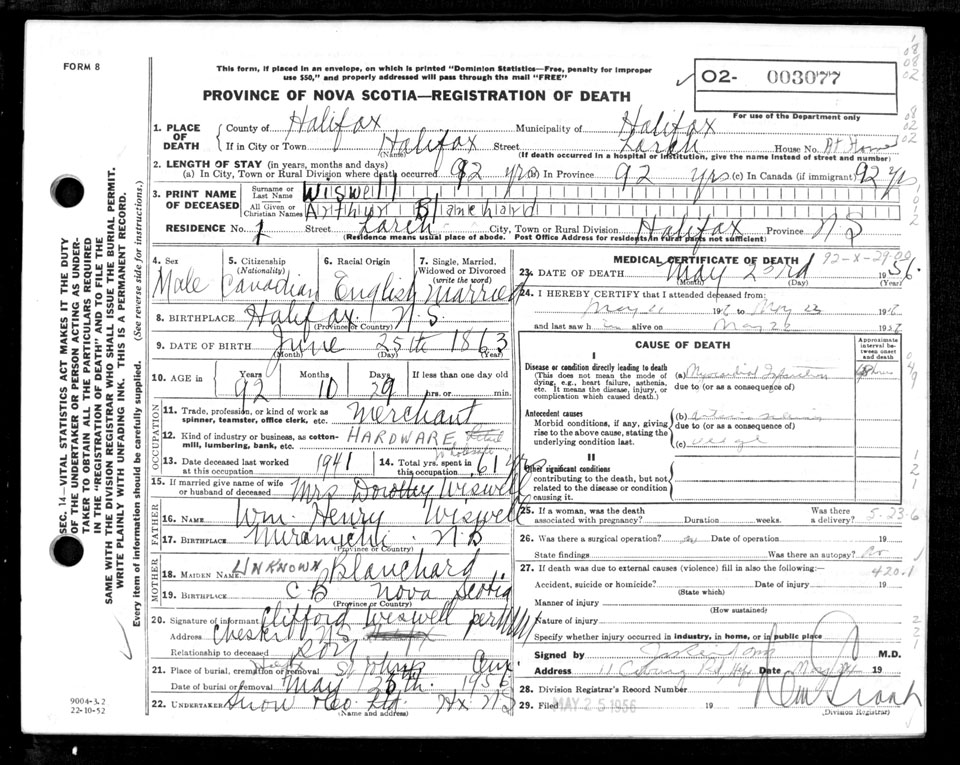 FORM 8
This form, if placed in an envelope, on which is printed "Dominion Statistics—Free, penalty for improper
use $50," and properly addressed will pass through the mail "FREE"
02- 003077
For use of the Department only
PROVINCE OF NOVA SCOTIA—REGISTRATION OF DEATH
1. PLACE OF DEATH County of Halifax Municipality of Halifax
If in City or Town Halifax Street Larch House No. At Home
(Name) (If death occurred in a hospital or institution, give the name instead of street and number)
2. LENGTH OF STAY (in years, months and days)
(a) In City, Town or Rural Division where death occurred 92 yrs (b) In Province 92 yrs (c) In Canada (if immigrant) 92 yrs
3. PRINT NAME OF DECEASED Surname or Last Name Wiswell
All Given or Christian Names Arthur Blanchard
RESIDENCE No. 1 Street Larch City, Town or Rural Division Halifax Province NS
(Residence means usual place of abode. Post Office Address for residents in rural parts not sufficient)
4. Sex Male
5. Citizenship (Nationality) Canadian
6. Racial Origin English
7. Single, Married, Widowed or Divorced (write the word) Married
8. BIRTHPLACE Halifax N.S.
(Province or Country)
9. DATE OF BIRTH June 25th 1863
(Month) (Day) (Year)
10. AGE in Years 92 Months 10 Days 29 If less than one day old
hrs. or min.
OCCUPATION
11. Trade, profession, or kind of work as spinner, teamster, office clerk, etc. Merchant
12. Kind of industry or business, as cotton-mill, lumbering, bank, etc. HARDWARE, Retail Wholesale
13. Date deceased last worked at this occupation 1941
14. Total yrs. spent in this occupation 61 yrs
15. If married give name of wife or husband of deceased Mrs Dorothy Wiswell
FATHER
16. NAME Wm. Henry Wiswell
17. BIRTHPLACE Miramichi N.B
(Province or Country)
MOTHER
18. MAIDEN NAME UNKNOWN Blanchard
19. BIRTHPLACE C B Nova Scotia
(Province or Country)
20. Signature of informant Clifford Wiswell per
Address Chester NS Halifax
Relationship to deceased Son
21. Place of burial, cremation or removal St Johns
Date of burial or removal May 25th 1956
22. UNDERTAKER Snow & Co. Ltd. Hx. NS
(Name and address)
MEDICAL CERTIFICATE OF DEATH
92-X-29-00
23. DATE OF DEATH May 23rd 1956.
(Month) (Day) (Year)
24. I HEREBY CERTIFY that I attended deceased from:
May 1956 to May 1956
and last saw him alive on May 1956
CAUSE OF DEATH
Approximate interval between onset and death
I
Disease or condition directly leading to death
(This does not mean the mode of dying, e.g., heart failure, asthenia, etc. It means the disease, injury, or complication which caused death.)
(a) Myocardial Infarction
due to (or as a consequence of)
Antecedent causes
Morbid conditions, if any, giving rise to the above cause, stating the underlying condition last.
(b)
due to (or as a consequence of)
(c)
II
Other significant conditions
contributing to the death, but not related to the disease or condition causing it.
25. If a woman, was the death associated with pregnancy? Duration weeks. Was there a delivery?
5-23-6
26. Was there a surgical operation? no Date of operation 19
State findings Was there an autopsy? No
27. If death was due to external causes (violence) fill in also the following:
420.1
Accident, suicide or homicide? Date of injury 19
(State which)
Manner of injury
(How sustained)
Nature of injury
Specify whether injury occurred in industry, in home, or in public place
Signed by M.D.
Address 11 Date May 19
28. Division Registrar's Record Number
29. Filed MAY 25 1956 19
(Division Registrar)
SEC. 14—VITAL STATISTICS ACT MAKES IT THE DUTY
OF THE UNDERTAKER OR PERSON ACTING AS UNDER-
TAKER TO OBTAIN ALL THE PARTICULARS REQUIRED
IN THE "REGISTRATION OF DEATH" AND TO FILE THE
SAME WITH THE DIVISION REGISTRAR WHO SHALL ISSUE THE BURIAL PERMIT.
WRITE PLAINLY WITH UNFADING INK. THIS IS A PERMANENT RECORD.
Every item of information should be carefully supplied. (See reverse side for instructions.)
9004-3.2
22-10-52